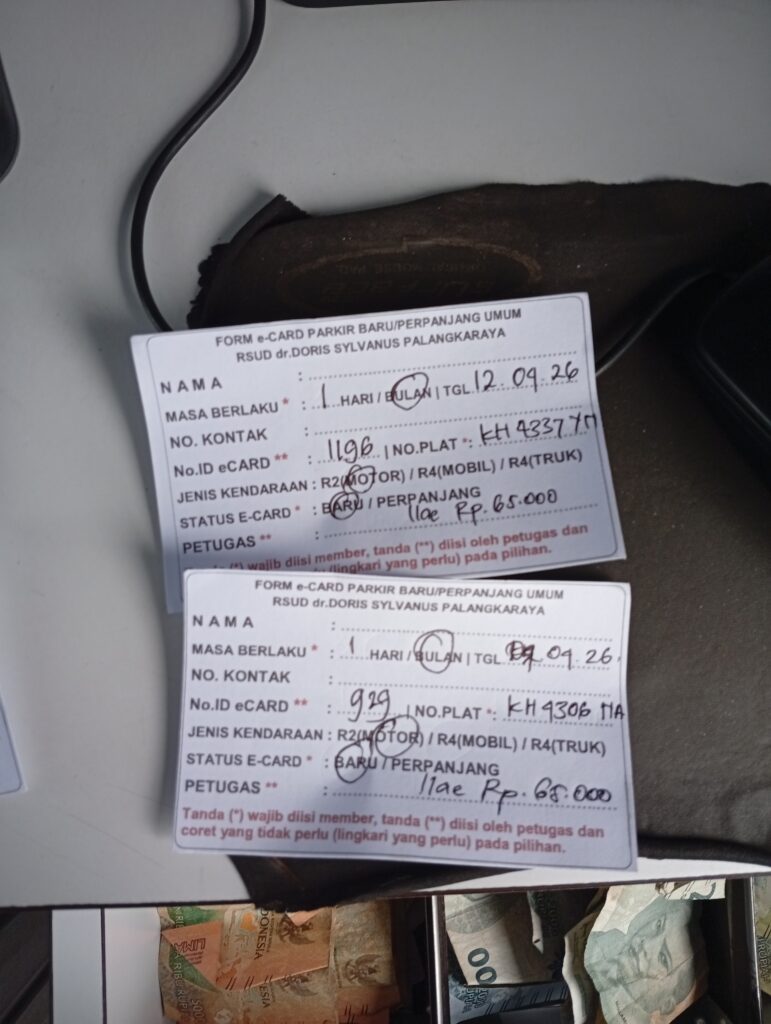 FORM e-CARD PARKIR BARU/PERPANJANG UMUM
RSUD dr.DORIS SYLVANUS PALANGKARAYA
NAMA :
MASA BERLAKU * : 1 HARI / BULAN | TGL 12.09.26
NO. KONTAK :
No.ID eCARD ** : 1196 | NO.PLAT *: KH 4337 YM
JENIS KENDARAAN : R2(MOTOR) / R4(MOBIL) / R4(TRUK)
STATUS E-CARD * : BARU / PERPANJANG
PETUGAS ** : Ilae Rp. 65.000
(*) wajib diisi member, tanda (**) diisi oleh petugas dan
(lingkari yang perlu) pada pilihan.
FORM e-CARD PARKIR BARU/PERPANJANG UMUM
RSUD dr.DORIS SYLVANUS PALANGKARAYA
NAMA :
MASA BERLAKU * : 1 HARI / BULAN | TGL 09.26.
NO. KONTAK :
No.ID eCARD ** : 929 | NO.PLAT *: KH 4306 MA
JENIS KENDARAAN : R2(MOTOR) / R4(MOBIL) / R4(TRUK)
STATUS E-CARD * : BARU / PERPANJANG
PETUGAS ** : Ilae Rp. 65.000
Tanda (*) wajib diisi member, tanda (**) diisi oleh petugas dan
coret yang tidak perlu (lingkari yang perlu) pada pilihan.
INDONESIA
LIMA
RIBU
00